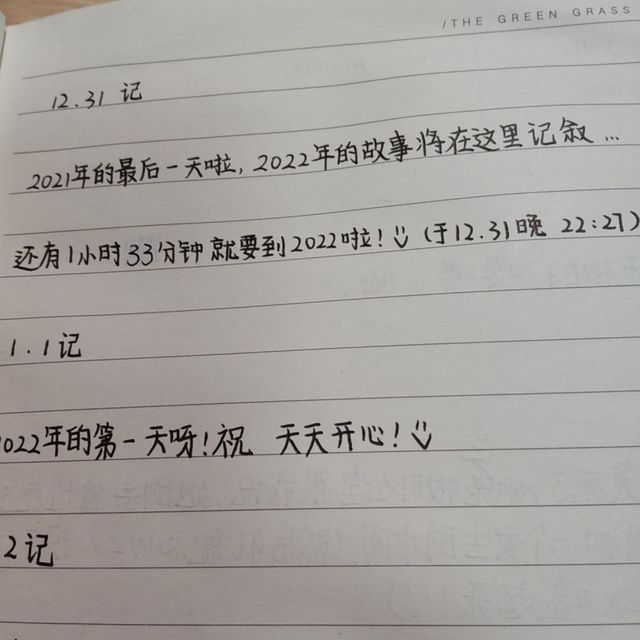 /THE GREEN GRASS
12.31 记
2021年的最后一天啦, 2022年的故事将在这里记叙...
还有1小时33分钟就要到2022啦! (于12.31晚 22:27)
1.1记
2022年的第一天呀!祝 天天开心!
2记